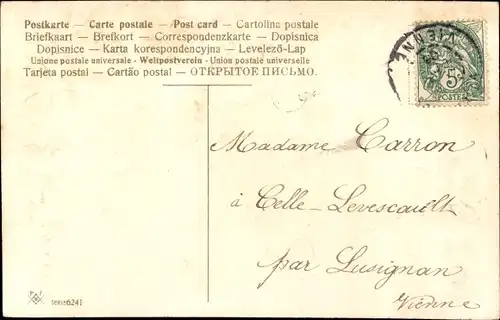 Postkarte - Carte postale - Post card - Cartolina postale
Briefkaart - Brefkort - Correspondenzkarte - Dopisnica
Dopisnice - Karta korespondencyjna - Levelező-Lap
Unione postale universale - Weltpostverein - Union postale universelle
Tarjeta postal - Cartão postal - ОТКРЫТОЕ ПИСЬМО.
VIENNE
5
POSTES
Madame Carron
à Celle-Levescault
par Lusignan
Vienne